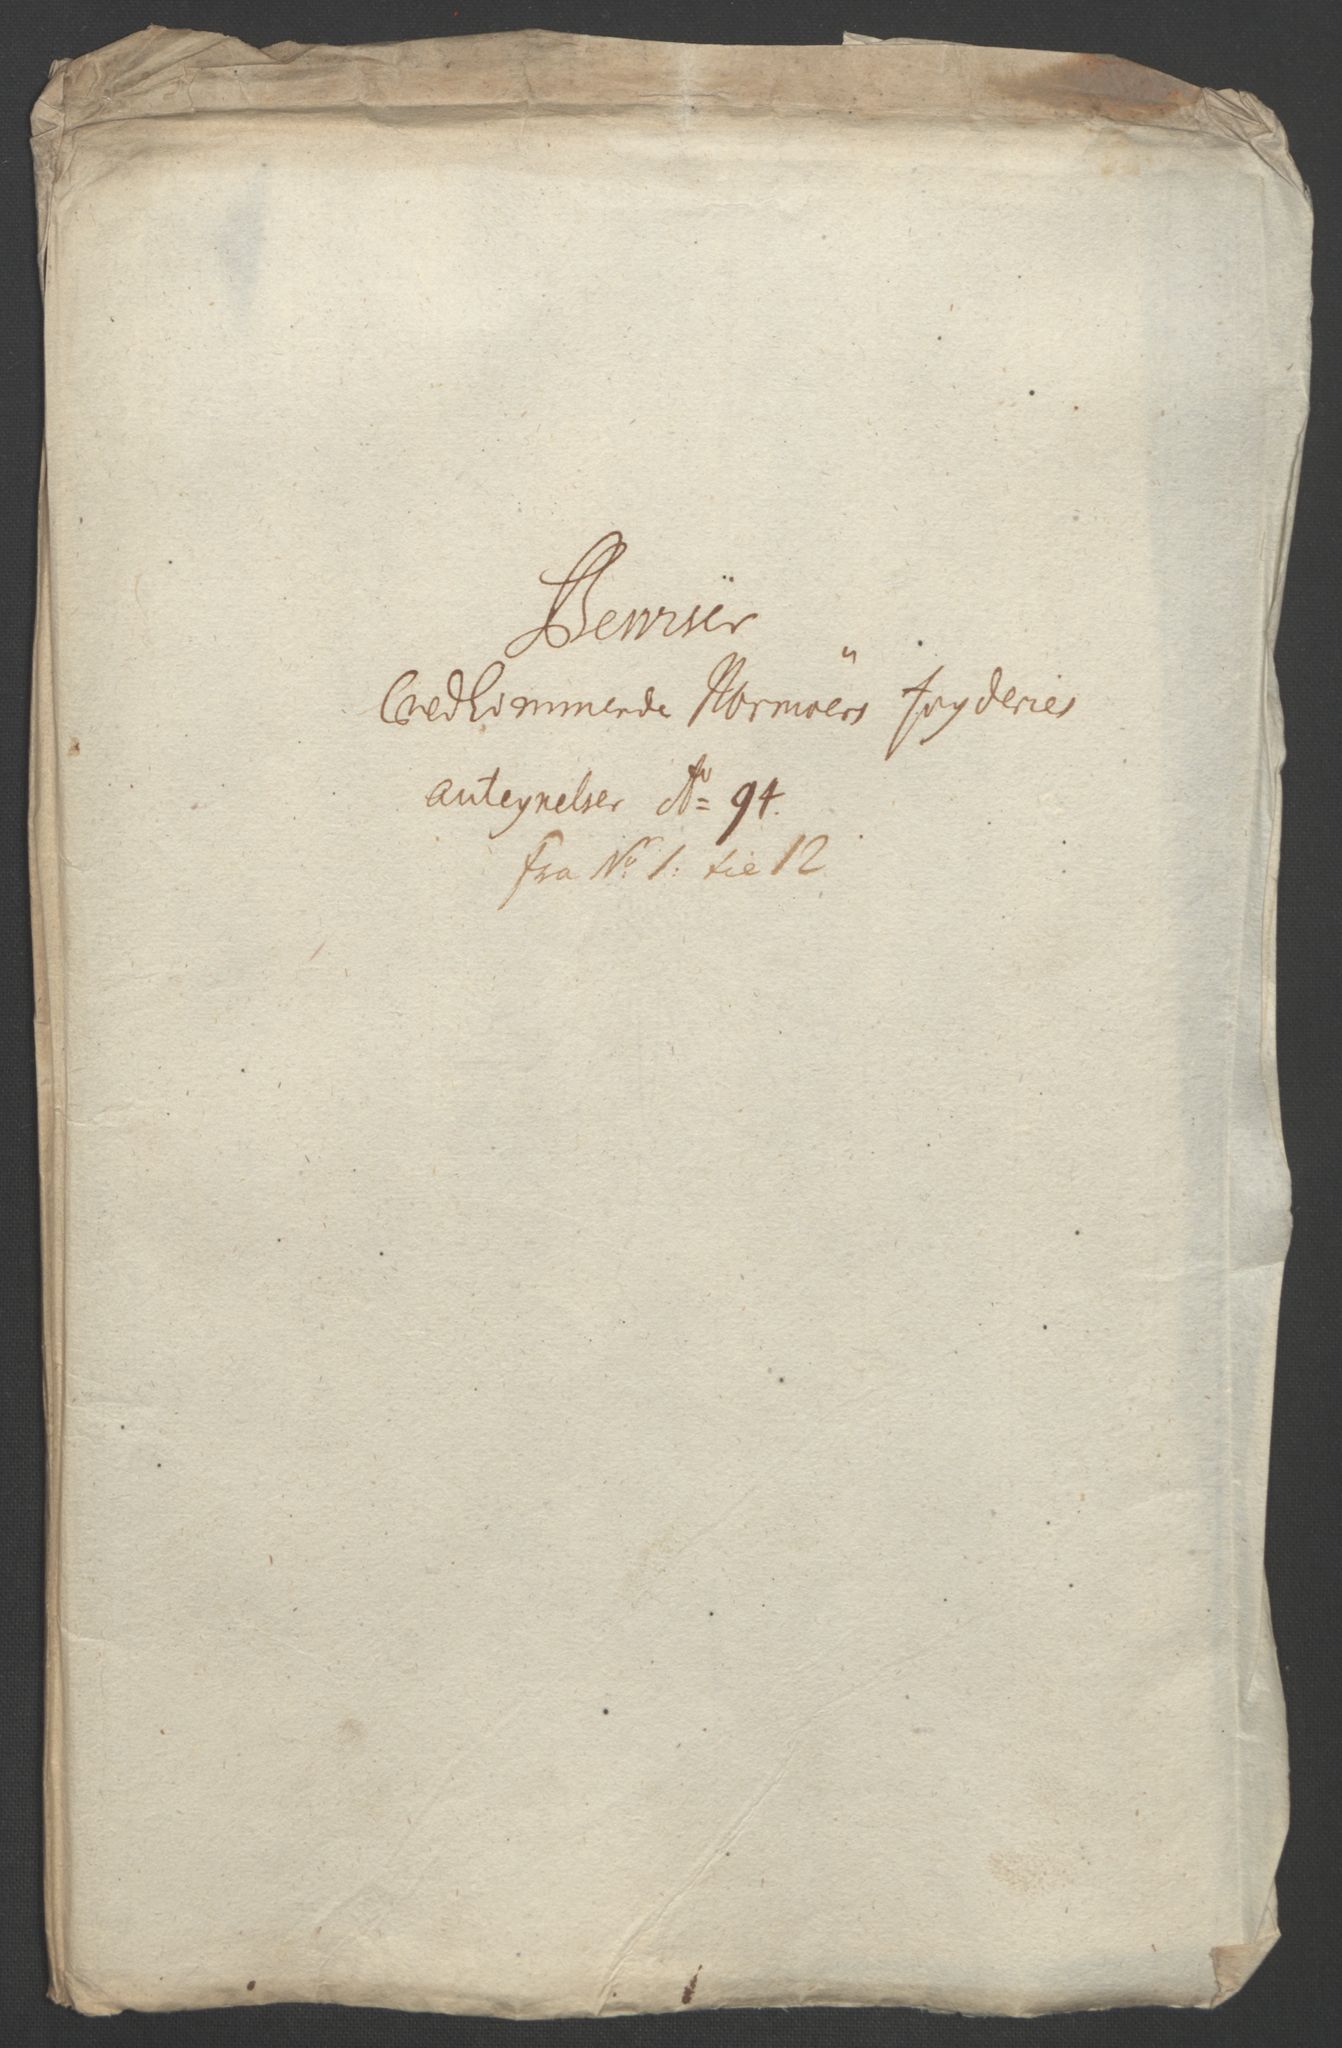 Bewiser
Vedkommende Normøers fogderies
antegnelser Ao= 94.
fra No. 1. til 12